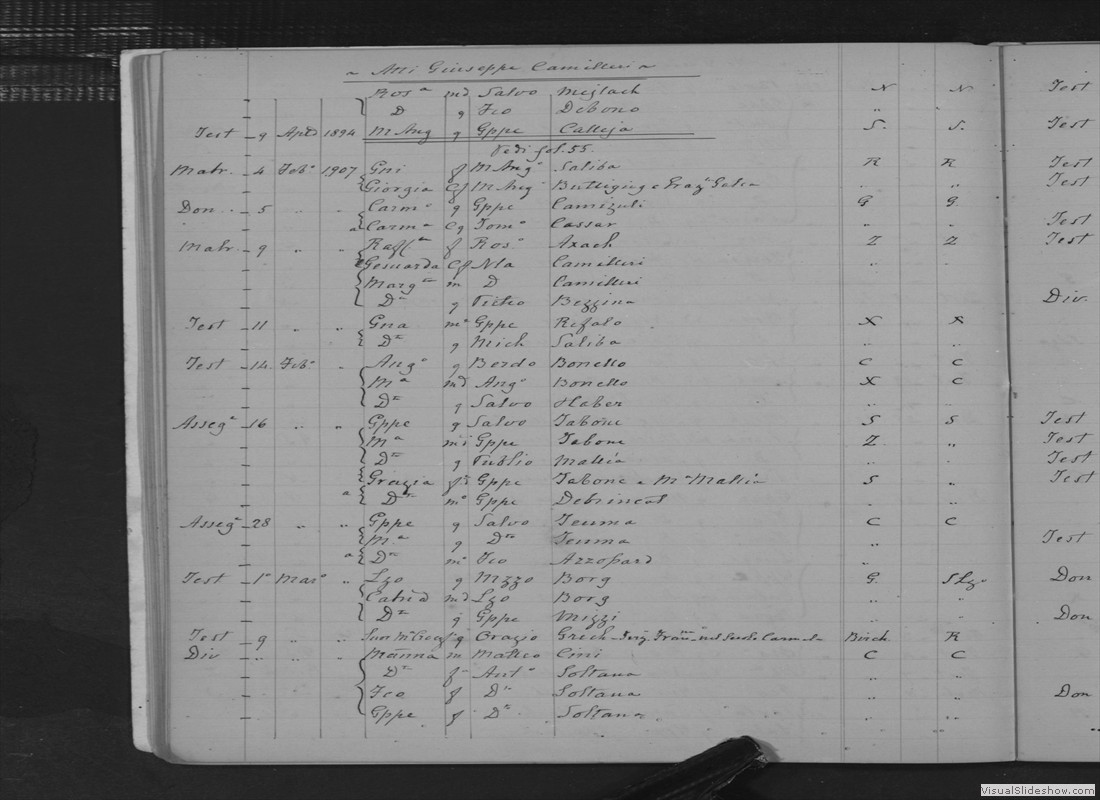 ~ Atti Giuseppe Camilleri ~
Ros.a md Salvo Mejlach N N Test
D g Fco Debono " "
Test 9 1894 M Ang g Gppe Calleja S. S. Test
Vedi fol. 55.
Matr. 4 Feb.o 1907 Gni f M Ang.o Saliba R R Test
Giorgia Cf M Ang Buttigieg e Graz.a Galea " " Test
Don 5 " " Carm.o g Gppe Camizuli G G
a Carm.a Cg Tom.o Cassar Test
Matr. 9 " " f Ros.o Axach Z Z Test
Gesuarda Cf Nla Camilleri " "
Marg.ta m D Camilleri
D.ta g Pietro Bezzina Div.
Test 11 " " Gna m.o Gppe Refalo X X
D.ta g Mich Saliba " "
Test 14 Feb.o " Ang.o g Berdo Bonello C C
M.a md Ang.o Bonello X C
D.ta g Salvo Haber " "
Asseg.a 16 " " Gppe g Salvo Tabone S S Test
M.a mi Gppe Tabone Z " Test
D.ta g Publio Mallia " " Test
Grazia Gppe Tabone e M.a Mallia S " Test
a D.ta m.o Gppe Debrincat " "
Asseg.a 28 " " Gppe g Salvo Teuma C C
M.a g D.ta Teuma " Test
a D.ta m.o Fco Azzopard " "
Test 1.o Mar.o " Lzo g Mzzo Borg G. S Lzo Don
Cat.na md Lzo Borg " "
D.ta g Gppe Mizzi " " Don
Test 9 " " g Orazio Grech Carmela Birch R
Div " " " Marina m Matteo Cini C C
D.ta f Ant.o Soltana " "
Fco f D.ta Soltana " " Don
Gppe f D.ta Soltana " "
VisualSlideshow.com